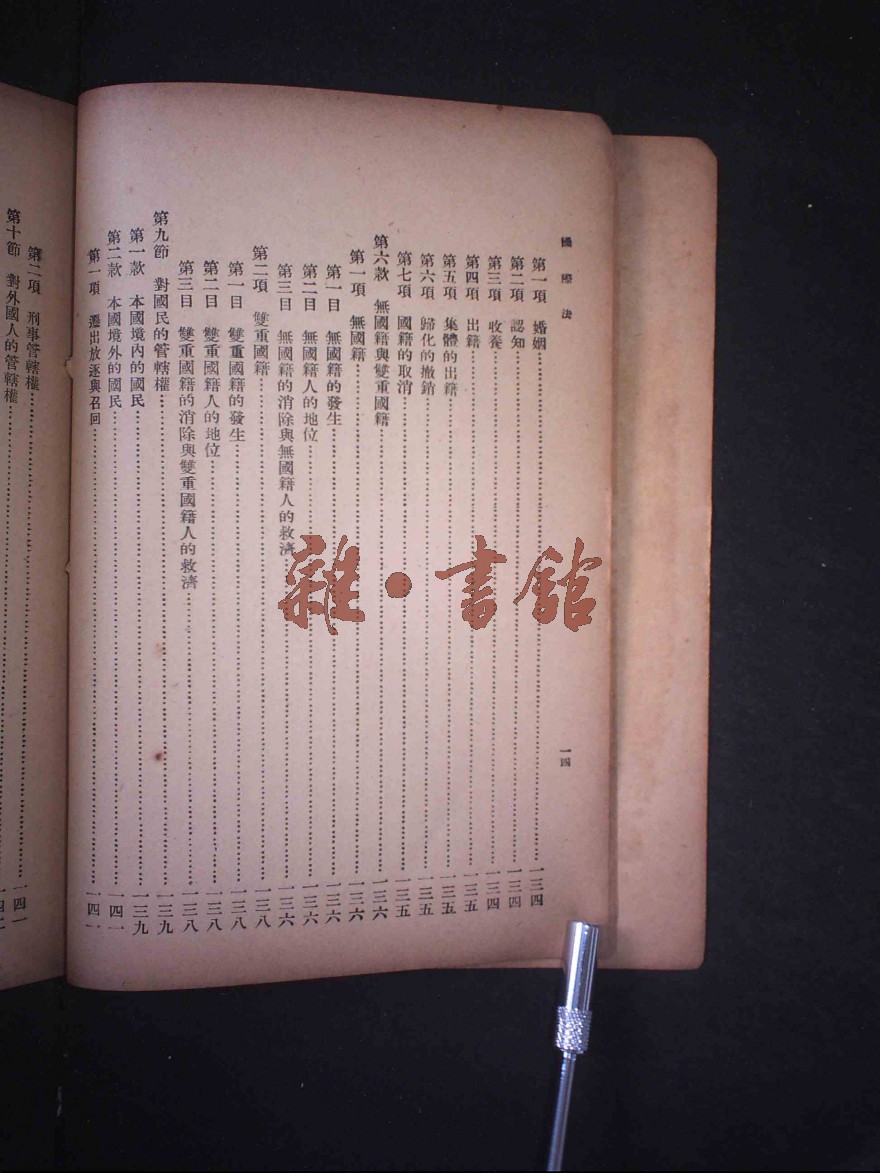 國際法
一四
第一項 婚姻…………一三四
第二項 認知…………一三四
第三項 收養…………一三四
第四項 出籍…………一三五
第五項 集體的出籍…………一三五
第六項 歸化的撤銷…………一三五
第七項 國籍的取消…………一三五
第六款 無國籍與雙重國籍…………一三六
第一項 無國籍…………一三六
第一目 無國籍的發生…………一三六
第二目 無國籍人的地位…………一三六
第三目 無國籍的消除與無國籍人的救濟…………一三六
第二項 雙重國籍…………一三八
第一目 雙重國籍的發生…………一三八
第二目 雙重國籍人的地位…………一三八
第三目 雙重國籍的消除與雙重國籍人的救濟…………一三八
第九節 對國民的管轄權…………一三九
第一款 本國境內的國民…………一三九
第二款 本國境外的國民…………一四一
第一項 遷出放逐與召回…………一四一
第二項 刑事管轄權…………一四一
第十節 對外國人的管轄權…………一四二
雜·書館